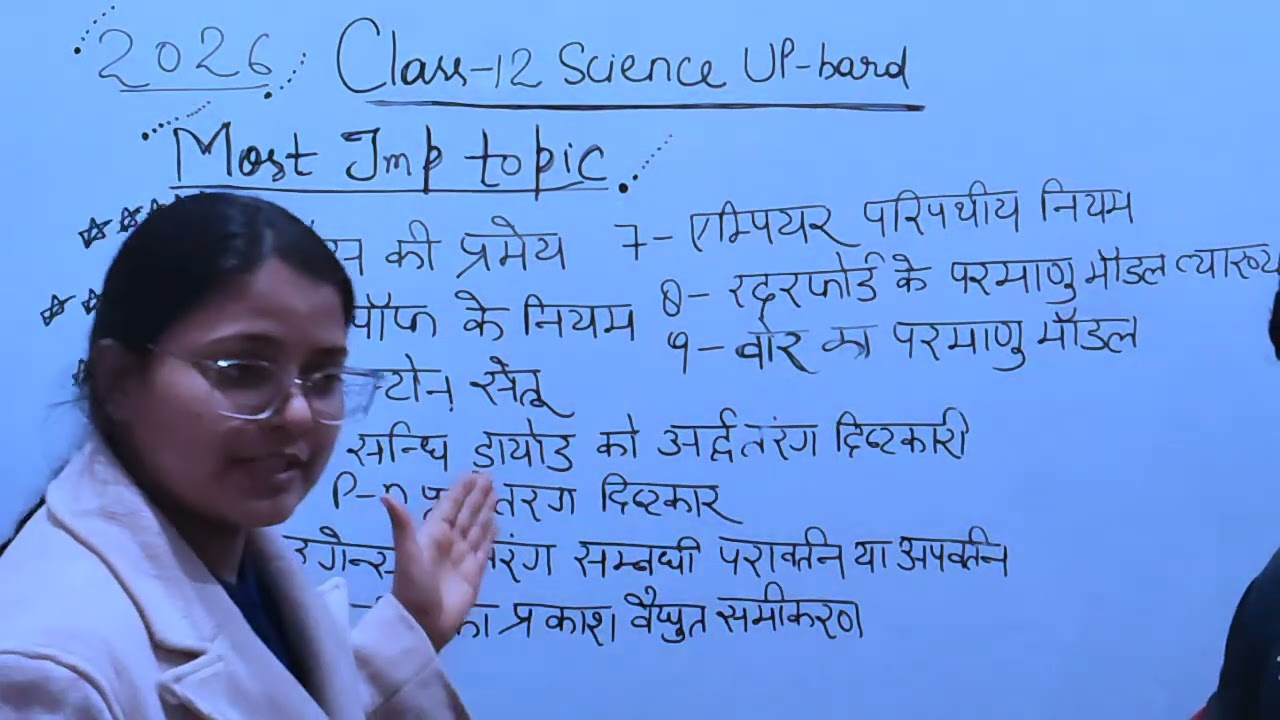 2026 Class-12 Science UP-bard
Most Imp topic
की प्रमेय
के नियम
सेतू
सन्धि डायोड को अर्द्धतरंग दिष्टकारी
P-n तरंग दिष्टकार
सम्बधी परावर्तन या अपवर्तन
का प्रकाश वैद्युत समीकरण
7- एम्पियर परिपथीय नियम
8- रदरफोर्ड के परमाणु मॉडल त्याख्य
9- बोर का परमाणु मॉडल